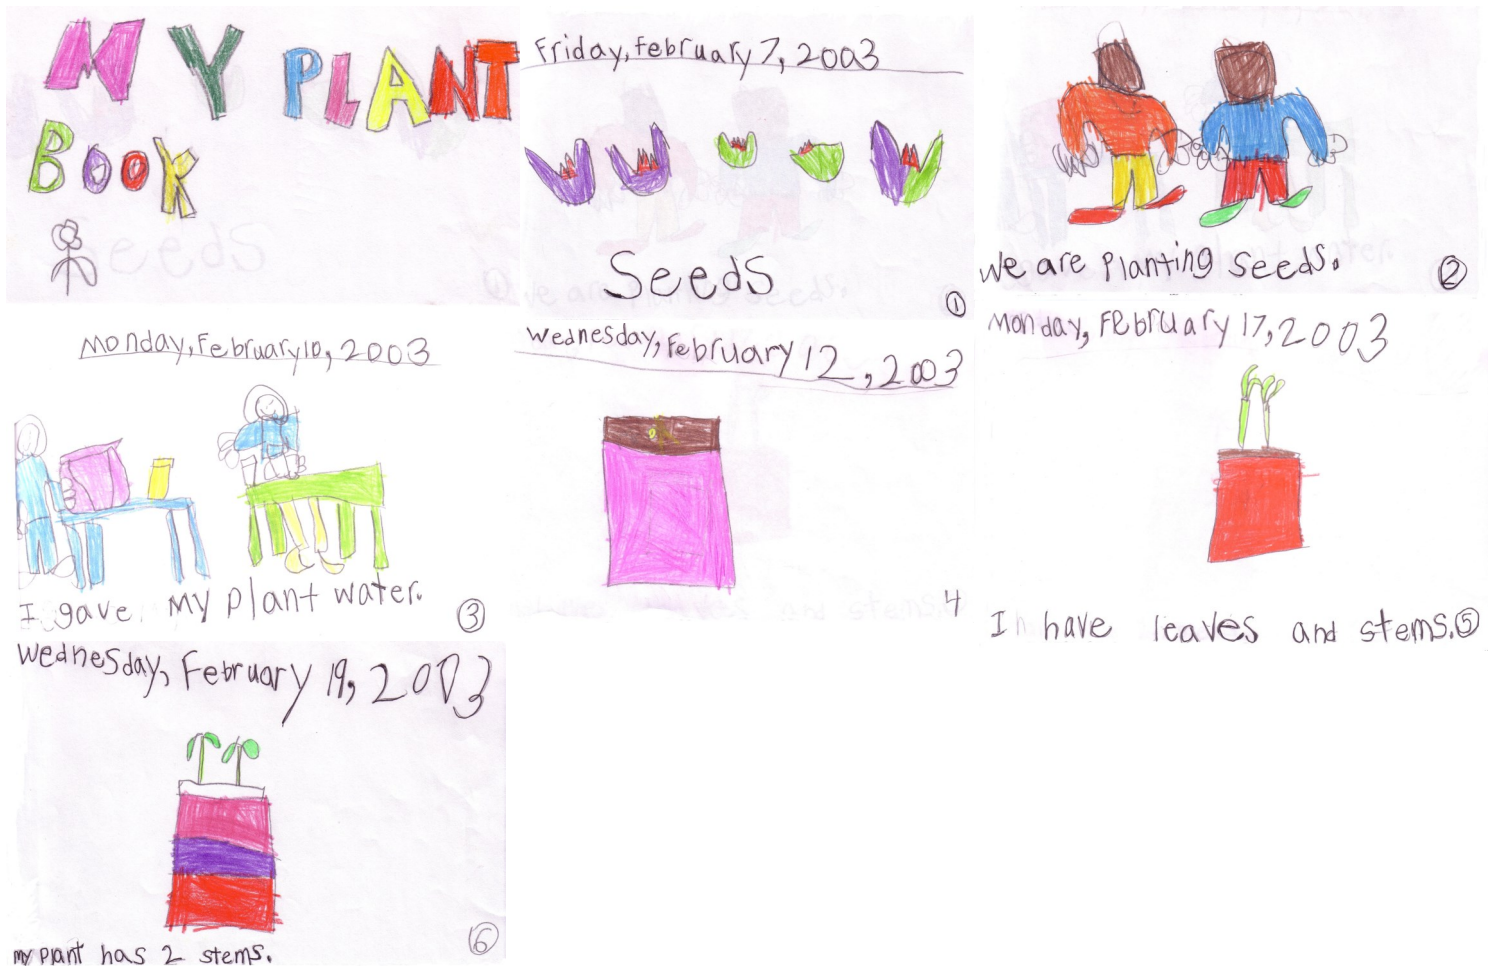 MY PLANT
BOOK
Friday, February 7, 2003
Seeds
1
We are planting seeds.
2
Monday, February 10, 2003
I gave my plant water.
3
Wednesday, February 12, 2003
4
Monday, February 17, 2003
I have leaves and stems.
5
Wednesday, February 19, 2003
my plant has 2 stems.
6